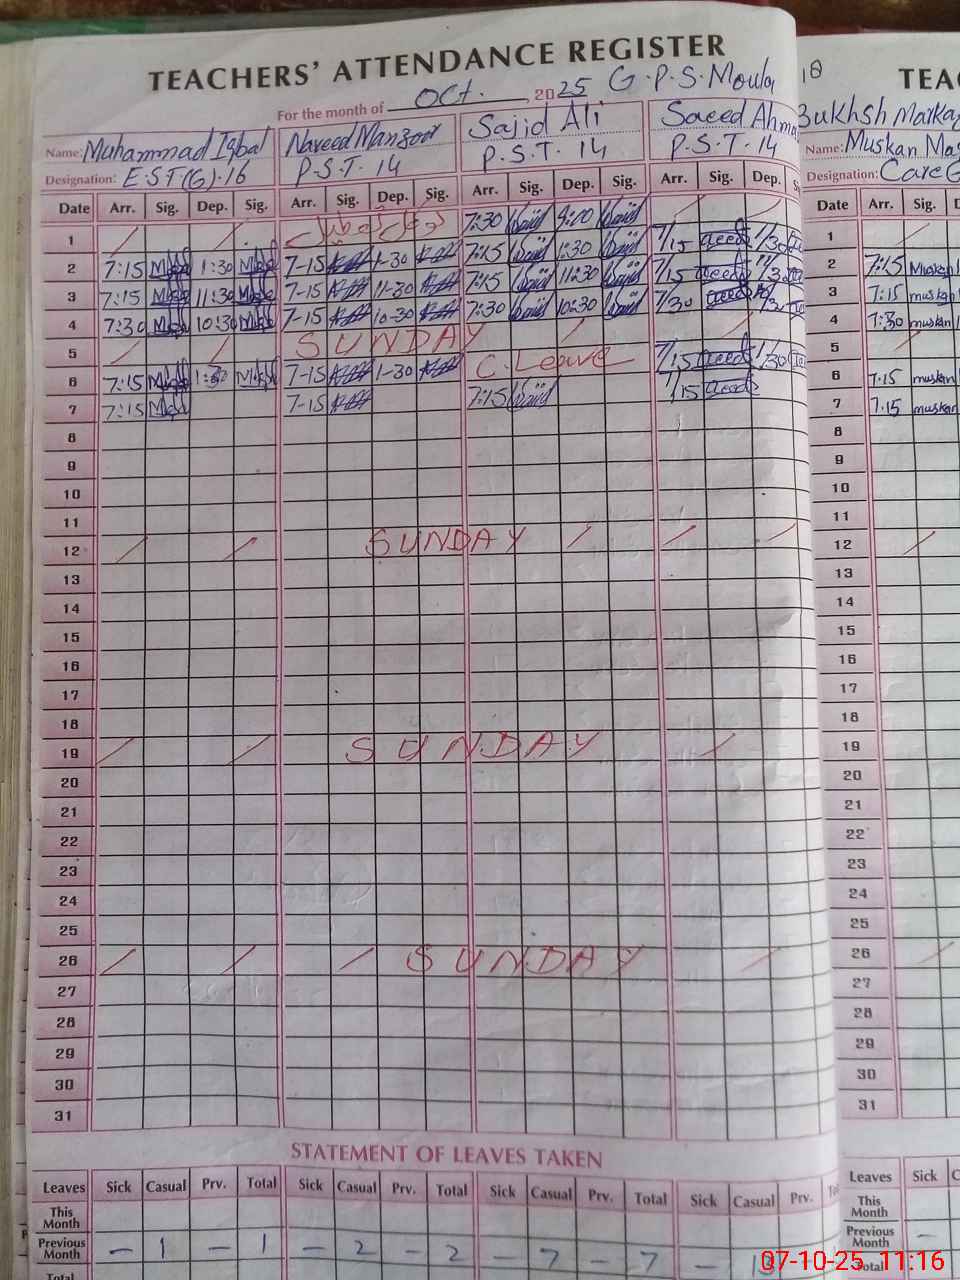 TEACHERS' ATTENDANCE REGISTER
For the month of Oct. 2025 G.P.S. Moula
Name: Muhammad Iqbal Naveed Manzoor Sajid Ali Saeed Ahma
Designation: E.S.T(G).16 P.S.T. 14 P.S.T. 14 P.S.T. 14
Date Arr. Sig. Dep. Sig. Arr. Sig. Dep. Sig. Arr. Sig. Dep. Sig. Arr. Sig. Dep.
1 7:30
2 7:15 1:30 7-15 1-30 7:15 1:30 7/15 1/30
3 7:15 11:30 7-15 11-30 7:15 11:30 7/15
4 7:30 10:30 7-15 10-30 7:30 10:30 7/30
5 SUNDAY
6 7:15 1:30 7-15 1-30 C.Leave 7/15 1/30
7 7:15 7-15 7:15 7/15
8
9
10
11
12 SUNDAY
13
14
15
16
17
18
19 SUNDAY
20
21
22
23
24
25
26 SUNDAY
27
28
29
30
31
STATEMENT OF LEAVES TAKEN
Leaves Sick Casual Prv. Total Sick Casual Prv. Total Sick Casual Prv. Total Sick Casual Prv.
This Month
Previous Month - 1 - 1 - 2 - 2 - 7 - 7 -
Total
18 TEAC
Bukhsh Markaz
Name: Muskan Ma
Designation: Care G
Date Arr. Sig. D
1
2 7:15 Muskan
3 7:15 muskan
4 7:30 muskan
5
6 7:15 muskan
7 7.15 muskan
8
9
10
11
12
13
14
15
16
17
18
19
20
21
22
23
24
25
26
27
28
29
30
31
Leaves Sick C
This Month
Previous Month -
Total
07-10-25 11:16